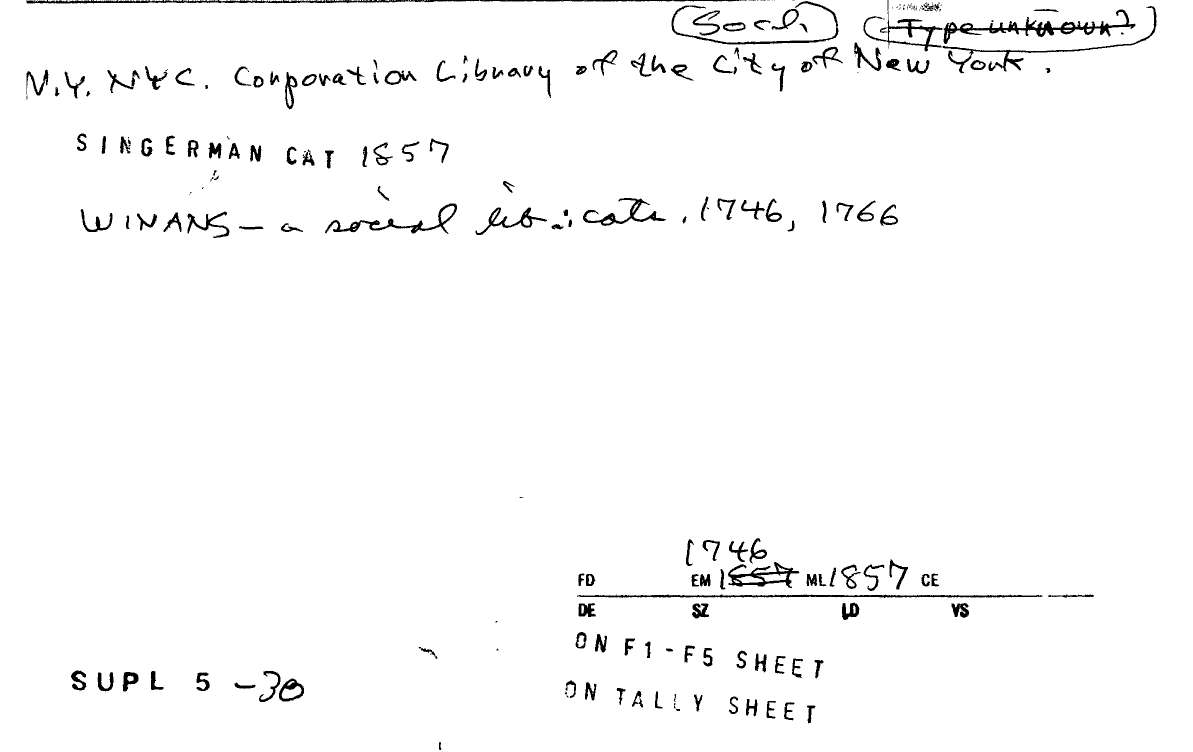 Socl. Type unknown?
N.Y. NYC. Corporation Library of the City of New York.
SINGERMAN CAT 1857
WINANS – a social lib.: cats. 1746, 1766
1746
FD EM 1857 ML 1857 CE
DE SZ LD VS
ON F1-F5 SHEET
SUPL 5 -30
ON TALLY SHEET